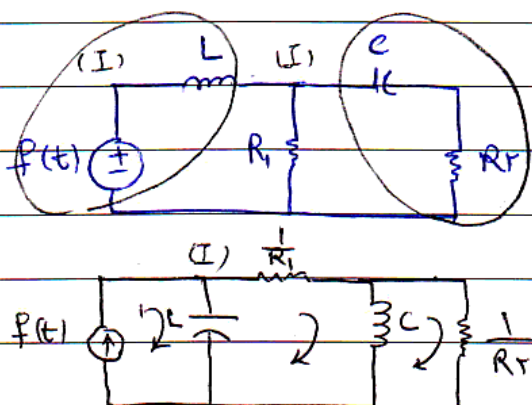 (I) L (I) C
f(t) + - R₁ R₂
(I) 1/R₁
f(t) L C 1/R₂